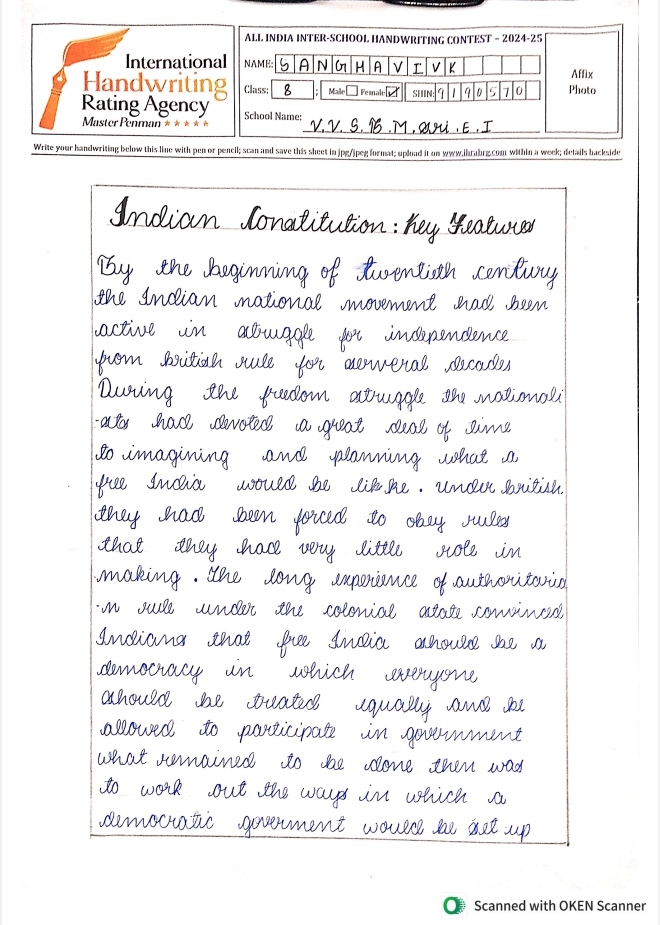 ALL INDIA INTER-SCHOOL HANDWRITING CONTEST - 2024-25
International
Handwriting
Rating Agency
Master Penman ★★★★★
NAME: SANGHAVI V K
Class: 8 ; Male Female ✓ SHIN: 9190570
School Name: V.V.S.B.M. .E.I
Affix
Photo
Write your handwriting below this line with pen or pencil; scan and save this sheet in jpg/jpeg format; upload it on www.ihrabrg.com within a week; details backside
Indian Constitution : Key Features
By the beginning of twentieth century
the Indian national movement had been
active in struggle for independence
from british rule for serveral decades
During the freedom struggle the nationali
-sts had devoted a great deal of time
to imagining and planning what a
free India would be like . under british
they had been forced to obey rules
that they had very little role in
making . The long experience of authoritaria
-n rule under the colonial state convinced
Indians that free India should be a
democracy in which everyone
should be treated equally and be
allowed to participate in government
what remained to be done then was
to work out the ways in which a
democratic goverment would be set up
Scanned with OKEN Scanner